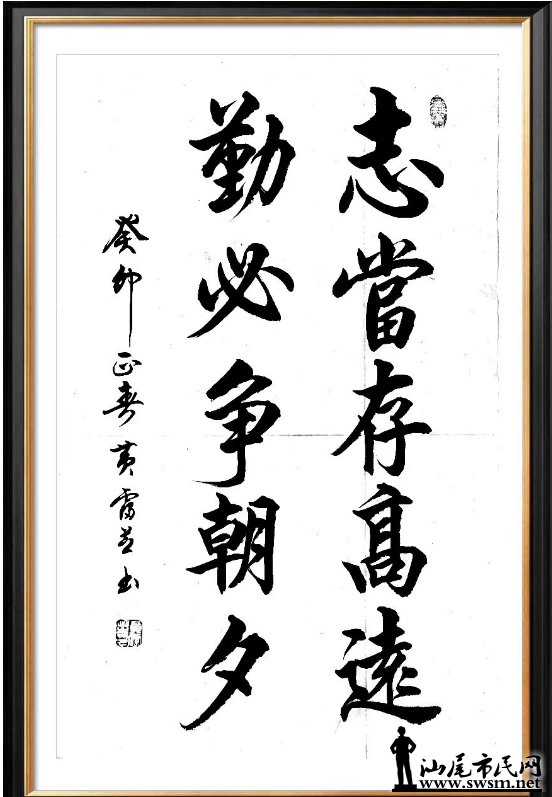 志當存高遠
勤必争朝夕
癸卯正春黄雷
书
汕尾市民网
www.swsm.net